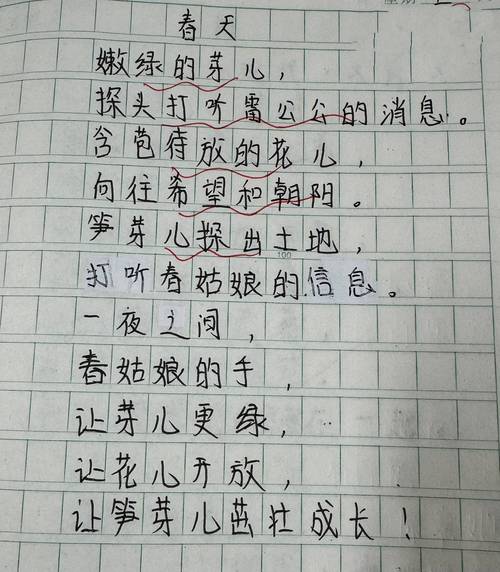 春天
嫩绿的芽儿，
探头打听雷公公的消息。
含苞待放的花儿，
向往希望和朝阳。
笋芽儿探出土地，
100
打听春姑娘的信息。
一夜之间，
春姑娘的手，
让芽儿更绿，
让花儿开放，
让笋芽儿茁壮成长！